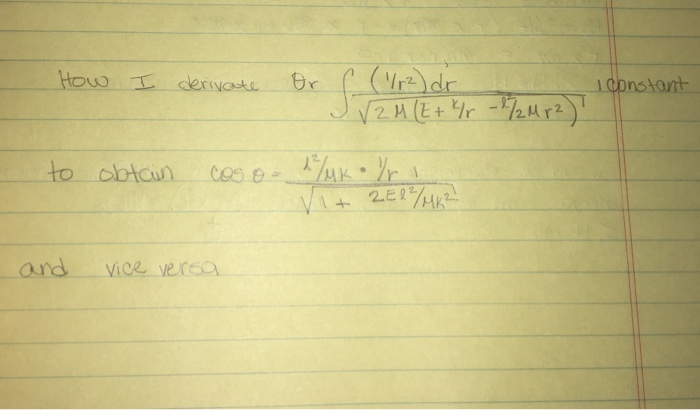 How I derivate θr ∫ (1/r²)dr / √(2M(E + k/r - l²/2Mr²)) , constant
to obtain cos θ = l²/MK • 1/r 1 / √(1 + 2El²/MK²)
and vice versa